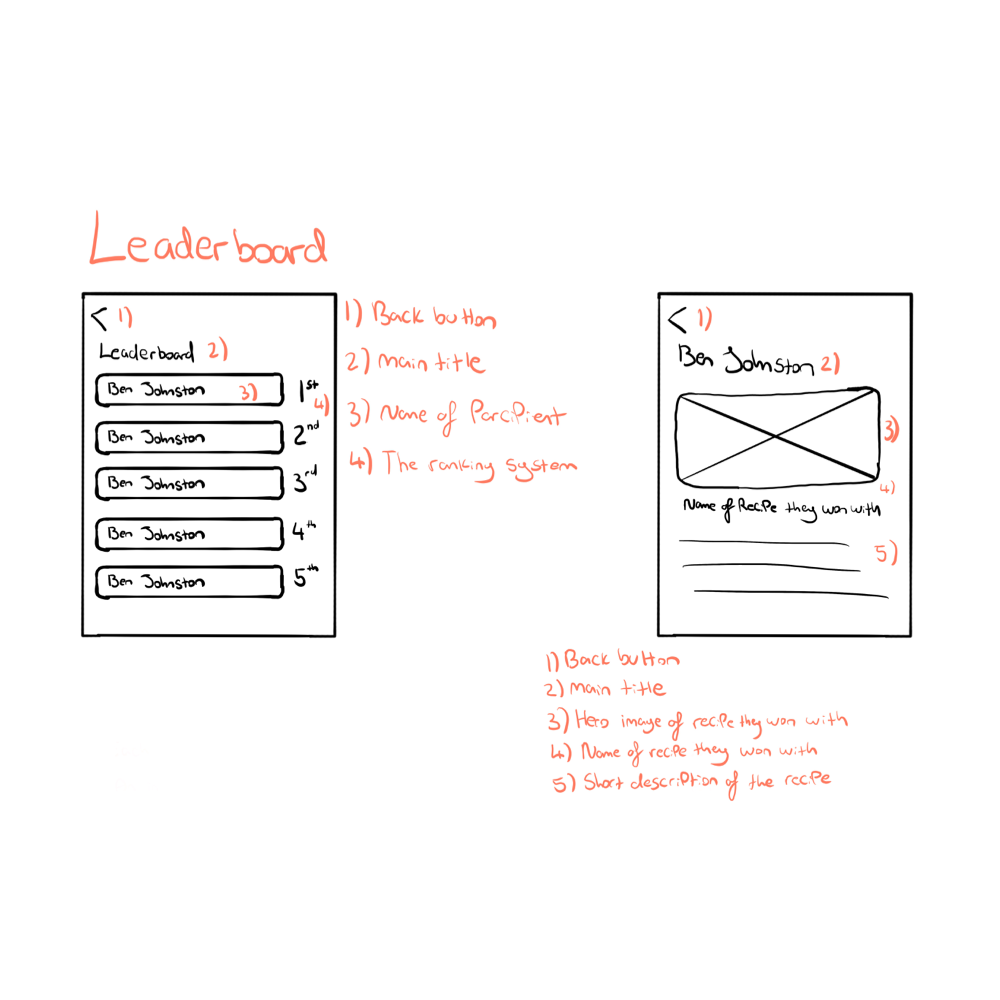 Leaderboard
< 1)
Leaderboard 2)
Ben Johnston 3) 1st 4)
Ben Johnston 2nd
Ben Johnston 3rd
Ben Johnston 4th
Ben Johnston 5th
1) Back button
2) Main title
3) Name of Parcipient
4) The ranking system
< 1)
Ben Johnston 2)
3)
4)
Name of Recipe they won with
5)
1) Back button
2) Main title
3) Hero image of recipe they won with
4) Name of recipe they won with
5) Short description of the recipe